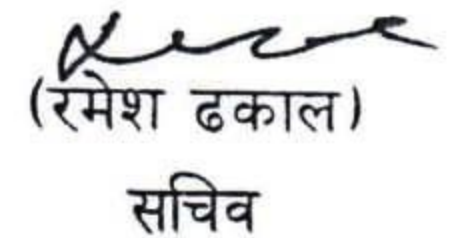 (रमेश ढकाल)
सचिव